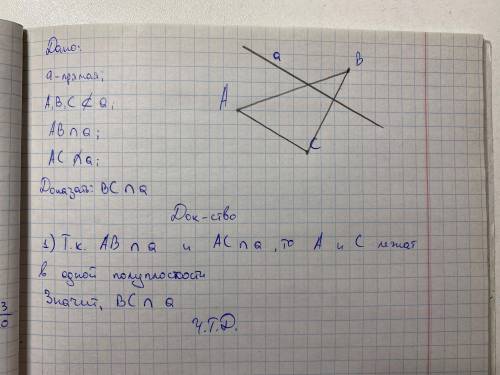 Дано:
a-прямая;
A,B,C ⊄ a;
AB ∩ a;
AC ∩̸ a;
Доказать: BC ∩ a
a
B
A
C
Док-ство
1) Т.к. AB ∩ a и AC ∩ a, то A и C лежат
в одной полуплоскости
Значит, BC ∩ a
Ч.Т.Д.
3
0